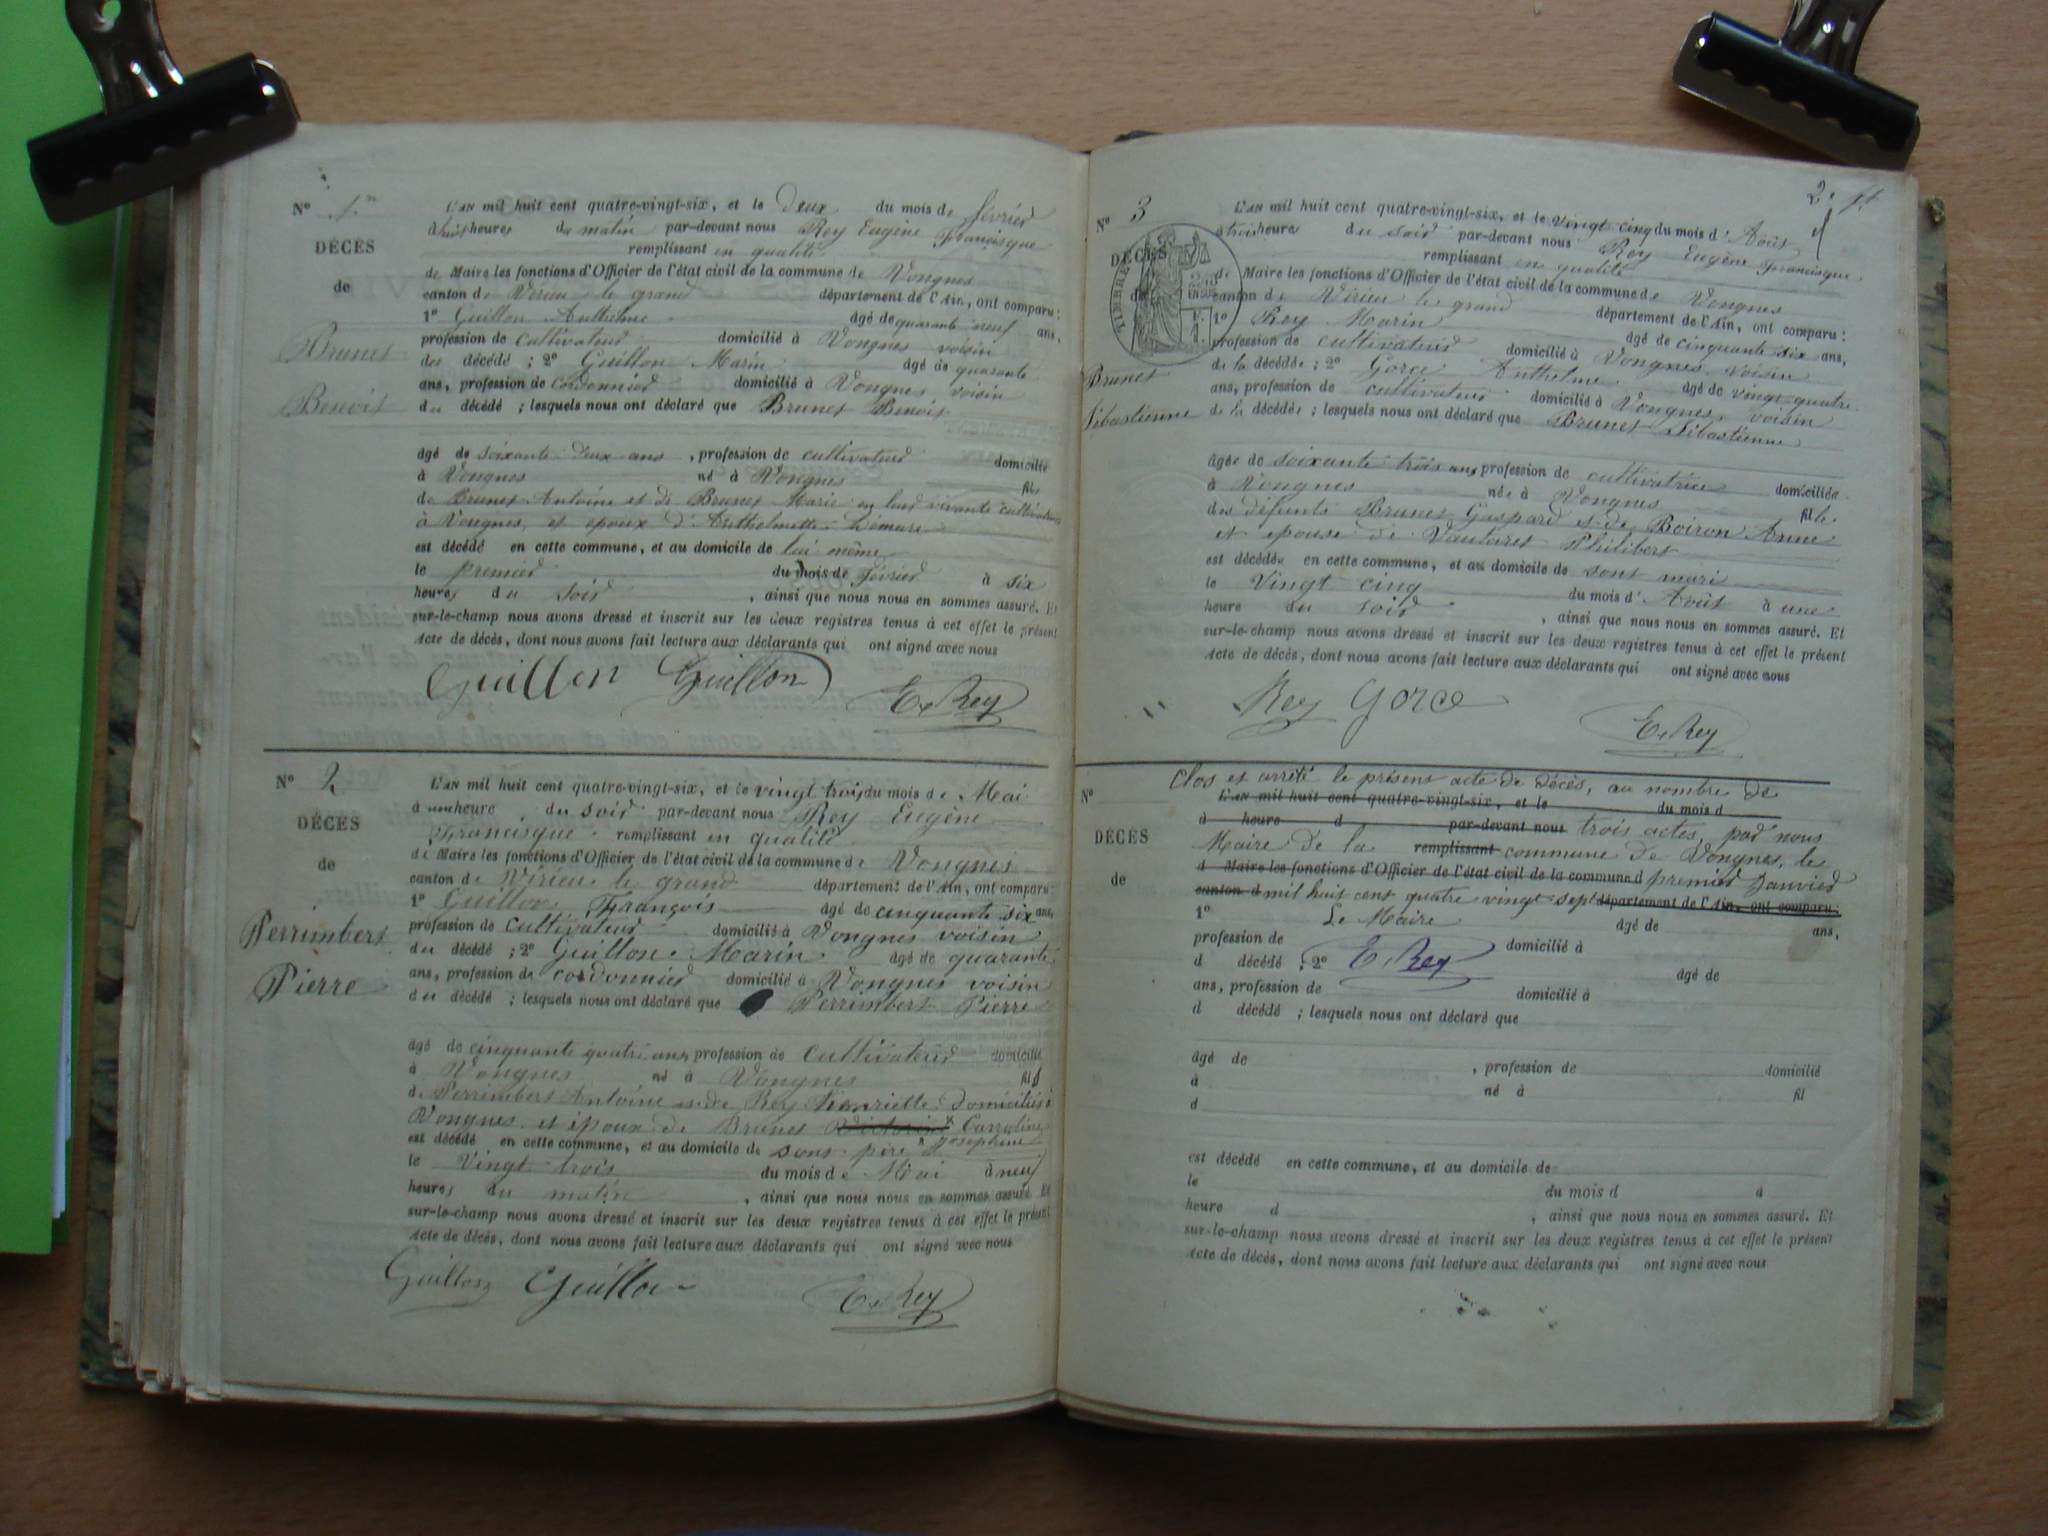 N° 1er
DÉCÈS
de
Brunet
Benoit
L'AN mil huit cent quatre-vingt-six, et le deux du mois de février
à huit heures du matin par-devant nous Rey Eugène Francisque
remplissant en qualité
de Maire les fonctions d'Officier de l'état civil de la commune de Vongnes
canton de Virieu le grand département de l'Ain, ont comparu :
1° Guillon Anthelme âgé de quarante neuf ans,
profession de cultivateur domicilié à Vongnes voisin
du décédé ; 2° Guillon Marin âgé de quarante
ans, profession de cordonnier domicilié à Vongnes voisin
du décédé ; lesquels nous ont déclaré que Brunet Benoit
âgé de soixante deux ans , profession de cultivateur domicilié
à Vongnes né à Vongnes fils
de Brunet Antoine et de Brunet Marie en leur vivante cultivateurs
à Vongnes, et époux d'Anthelmette Démure
est décédé en cette commune, et au domicile de lui même
le premier du mois de février à six
heures du soir , ainsi que nous nous en sommes assuré. Et
sur-le-champ nous avons dressé et inscrit sur les deux registres tenus à cet effet le présent
Acte de décès, dont nous avons fait lecture aux déclarants qui ont signé avec nous
Guillon Guillon E. Rey
N° 2
DÉCÈS
de
Perrimbert
Pierre
L'AN mil huit cent quatre-vingt-six, et le vingt trois du mois de Mai
à une heure du soir par-devant nous Rey Eugène
Francisque remplissant en qualité
de Maire les fonctions d'Officier de l'état civil de la commune de Vongnes
canton de Virieu le grand département de l'Ain, ont comparu
1° Guillon François âgé de cinquante six ans,
profession de cultivateur domicilié à Vongnes voisin
du décédé ; 2° Guillon Marin âgé de quarante
ans, profession de cordonnier domicilié à Vongnes voisin
du décédé ; lesquels nous ont déclaré que Perrimbert Pierre
âgé de cinquante quatre ans, profession de cultivateur domicilié
à Vongnes né à Vongnes fils
de Perrimbert Antoine et de Rey Henriette Domiciliés à
Vongnes et époux de Brunet Victorine Carroline
est décédé en cette commune, et au domicile de sont père x Josephine
le Vingt trois du mois de Mai à neuf
heures du matin , ainsi que nous nous en sommes assuré. Et
sur-le-champ nous avons dressé et inscrit sur les deux registres tenus à cet effet le présent
Acte de décès, dont nous avons fait lecture aux déclarants qui ont signé avec nous
Guillon Guillon E. Rey
2
N° 3
DÉCÈS
de
TIMBRE
Brunet
Sébastienne
L'AN mil huit cent quatre-vingt-six, et le vingt cinq du mois d'Août
à trois heure du soir par-devant nous Rey Eugène Francisque
remplissant en qualité
de Maire les fonctions d'Officier de l'état civil de la commune de Vongnes
canton de Virieu le grand département de l'Ain, ont comparu :
1° Rey Marin âgé de cinquante six ans,
profession de cultivateur domicilié à Vongnes voisin
de la décédée ; 2° Gorce Anthelme âgé de vingt quatre
ans, profession de cultivateur domicilié à Vongnes, voisin
de la décédée ; lesquels nous ont déclaré que Brunet Sébastienne
âgée de soixante trois ans, profession de cultivatrice domiciliée
à Vongnes née à Vongnes fille
des défunts Brunet Gaspard et de Boiron Anne
et épouse de Vautaret Philibert
est décédée en cette commune, et au domicile de sont mari
le Vingt cinq du mois d'Août à une
heure du soir , ainsi que nous nous en sommes assuré. Et
sur-le-champ nous avons dressé et inscrit sur les deux registres tenus à cet effet le présent
Acte de décès, dont nous avons fait lecture aux déclarants qui ont signé avec nous
Rey Gorce E. Rey
Clos et arrêté le présent acte de décès, au nombre de
N° L'AN mil huit cent quatre-vingt-six, et le du mois d
à heure d par-devant nous trois actes, par nous
DÉCÈS Maire de la remplissant commune de Vongnes, le
d Maire les fonctions d'Officier de l'état civil de la commune d premier Janvier
de canton d mil huit cent quatre vingt sept département de l'Ain, ont comparu :
1° Le Maire âgé de ans,
profession de domicilié à
d décédé ; 2° E. Rey âgé de
ans, profession de domicilié à
d décédé ; lesquels nous ont déclaré que
âgé de , profession de domicilié
à né à fil
d
est décédé en cette commune, et au domicile de
le du mois d à
heure d , ainsi que nous nous en sommes assuré. Et
sur-le-champ nous avons dressé et inscrit sur les deux registres tenus à cet effet le présent
Acte de décès, dont nous avons fait lecture aux déclarants qui ont signé avec nous